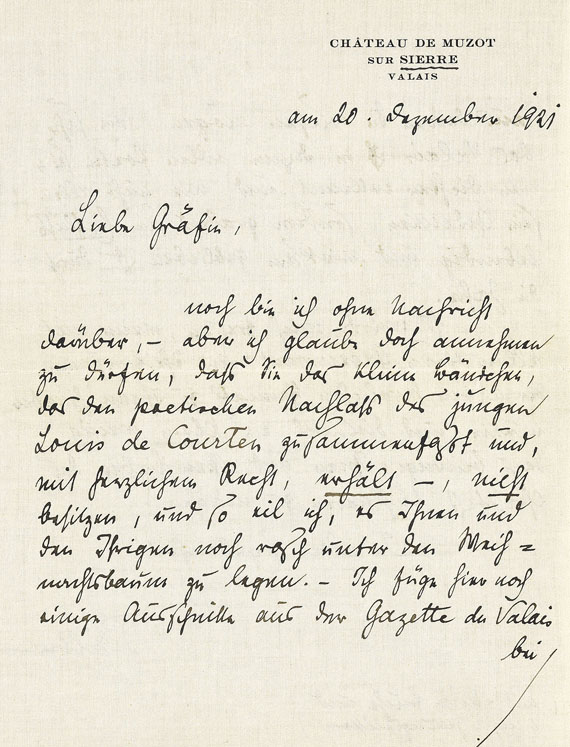 CHÂTEAU DE MUZOT
SUR SIERRE
VALAIS
am 20. Dezember 1921
Liebe Gräfin,
noch bin ich ohne Nachricht
darüber, – aber ich glaube doch annehmen
zu dürfen, dass Sie das kleine Bändchen,
das den poetischen Nachlass des jungen
Louis de Courten zusammenfasst und,
mit herzlichem Recht, erhält –, nicht
besitzen, und so eil ich, es Ihnen und
den Ihrigen noch rasch unter den Weih=
nachtsbaum zu legen. – Ich füge hier noch
einige Ausschnitte aus der Gazette du Valais
bei